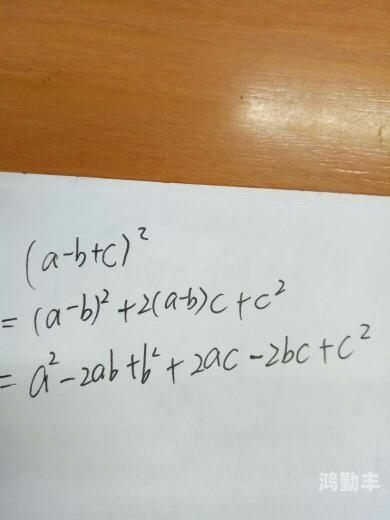 (a-b+c)²
= (a-b)²+2(a-b)c+c²
= a²-2ab+b²+2ac-2bc+c²
鸿勤丰